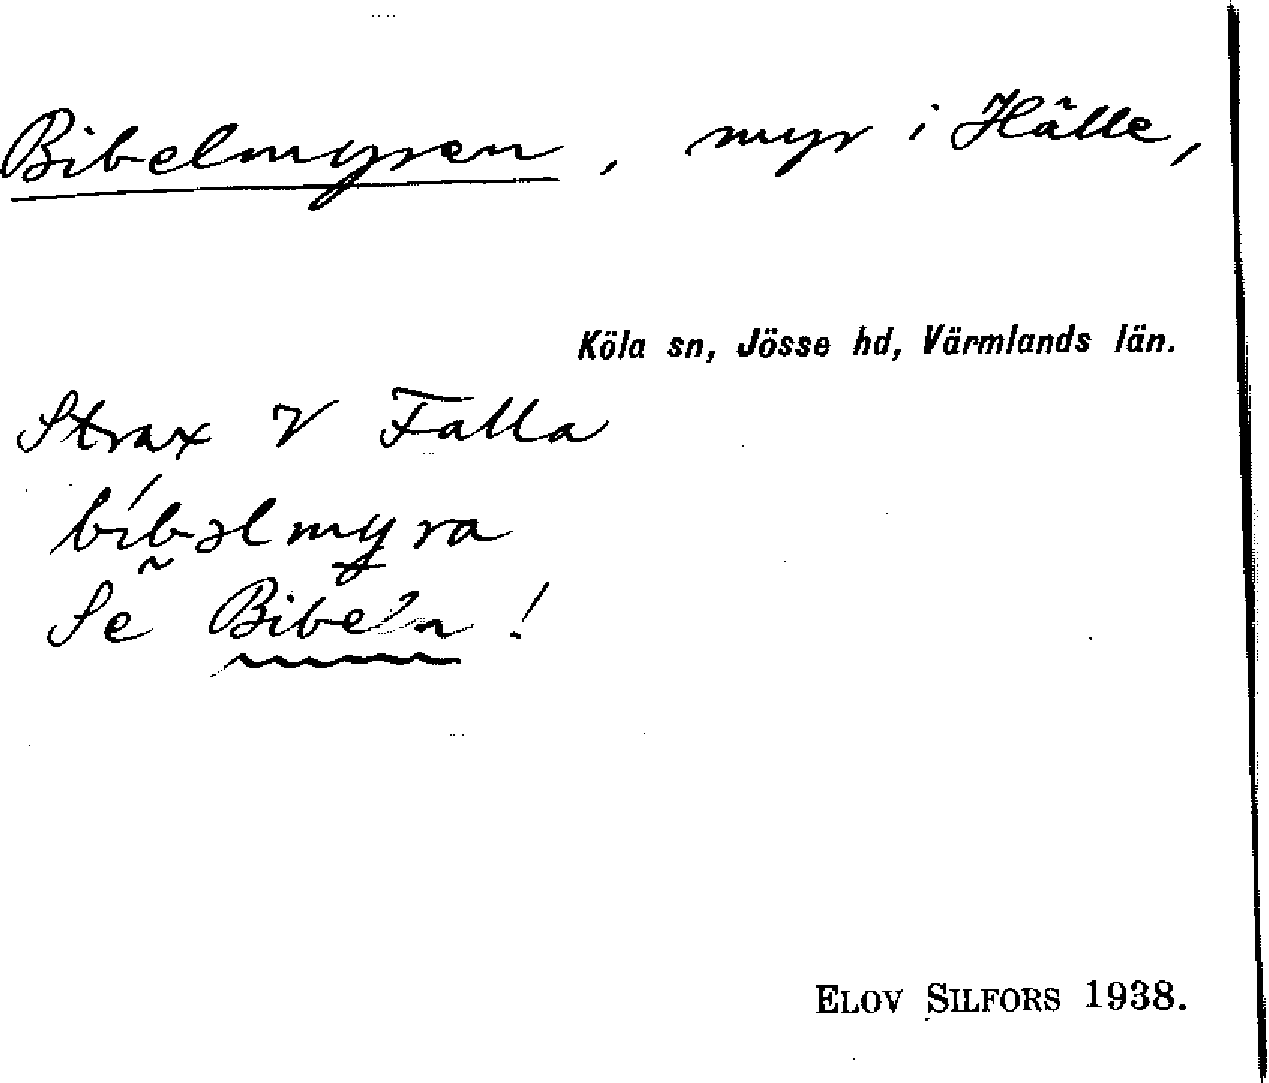 Bibelmyren, myr i Hälle,
Köla sn, Jösse hd, Värmlands län.
Strax V Fallа
bíbəlmyra
Se Bibeln!
ELOV SILFORS 1938.